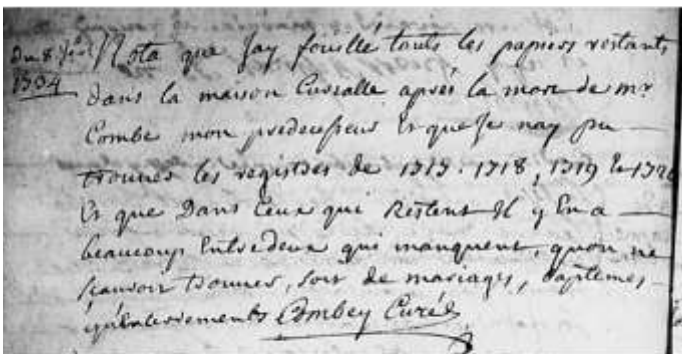 Du 8 Nota que Jay fouillé touts les papiers restants
1734 dans la maison Curialle aprés la mort de mr
Combe mon predecesseur Et que Je nay pu
trouver les registres de 1717. 1718, 1719 Et 1720
Et que Dans Ceux qui Restent Il y En a
beaucoup Entredeux qui manquent, quon ne
scauroit trouver, soit de mariages, baptemes,
Combey Curé